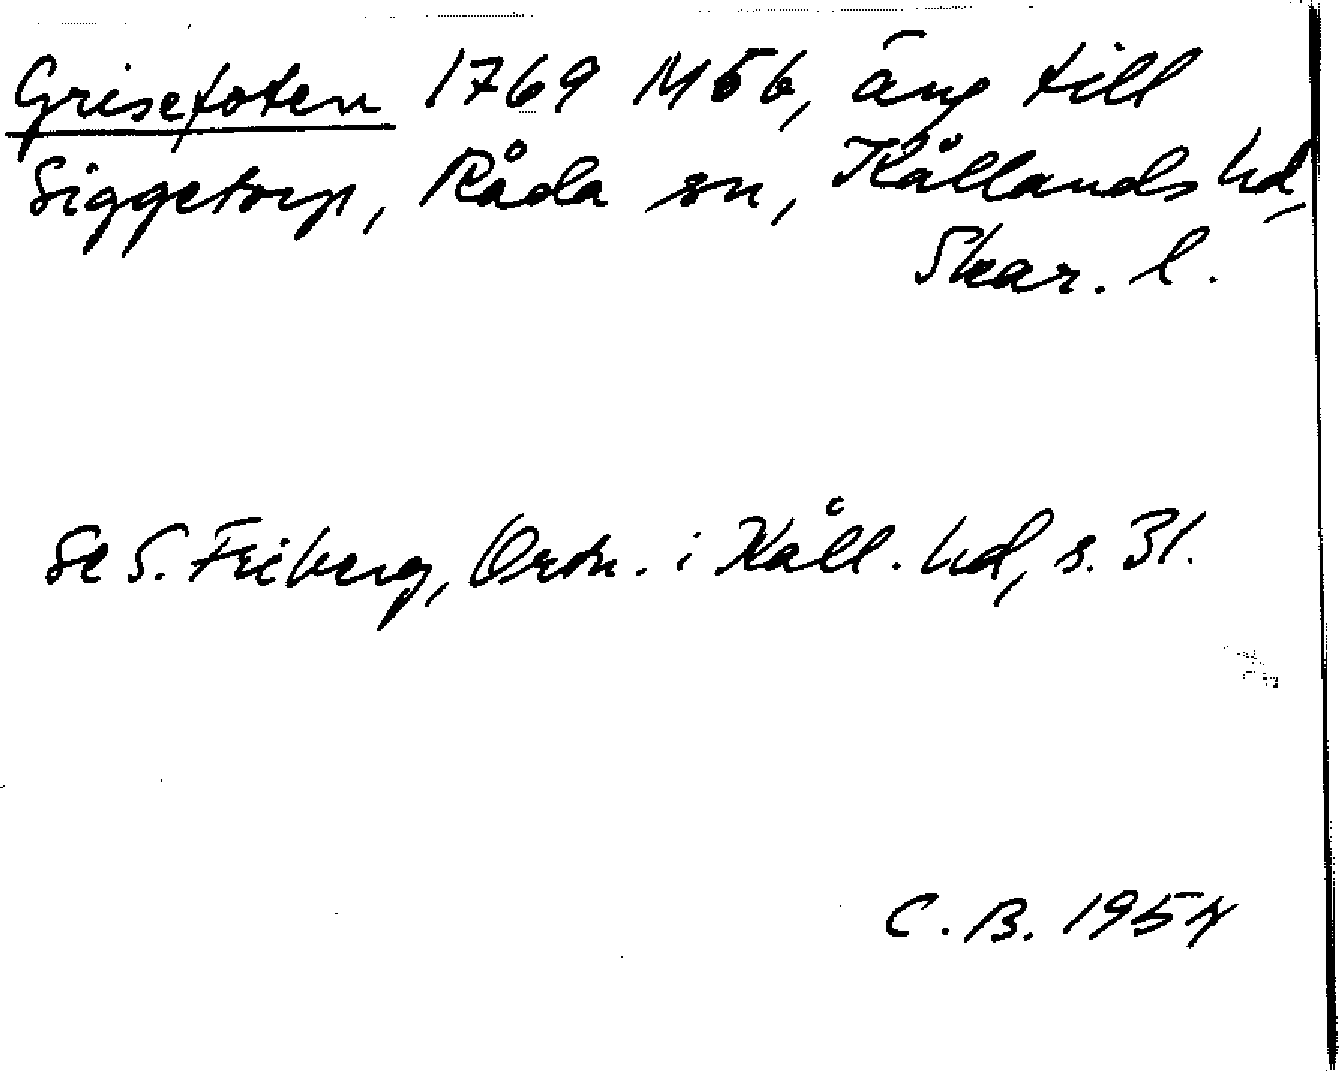 Grisefoten 1769 M56, äng till
Siggetorp, Råda sn, Kållands hd,
Skar. l.
Se S. Friberg, Ortn. i Kåll. hd, s. 31.
C. B. 1954